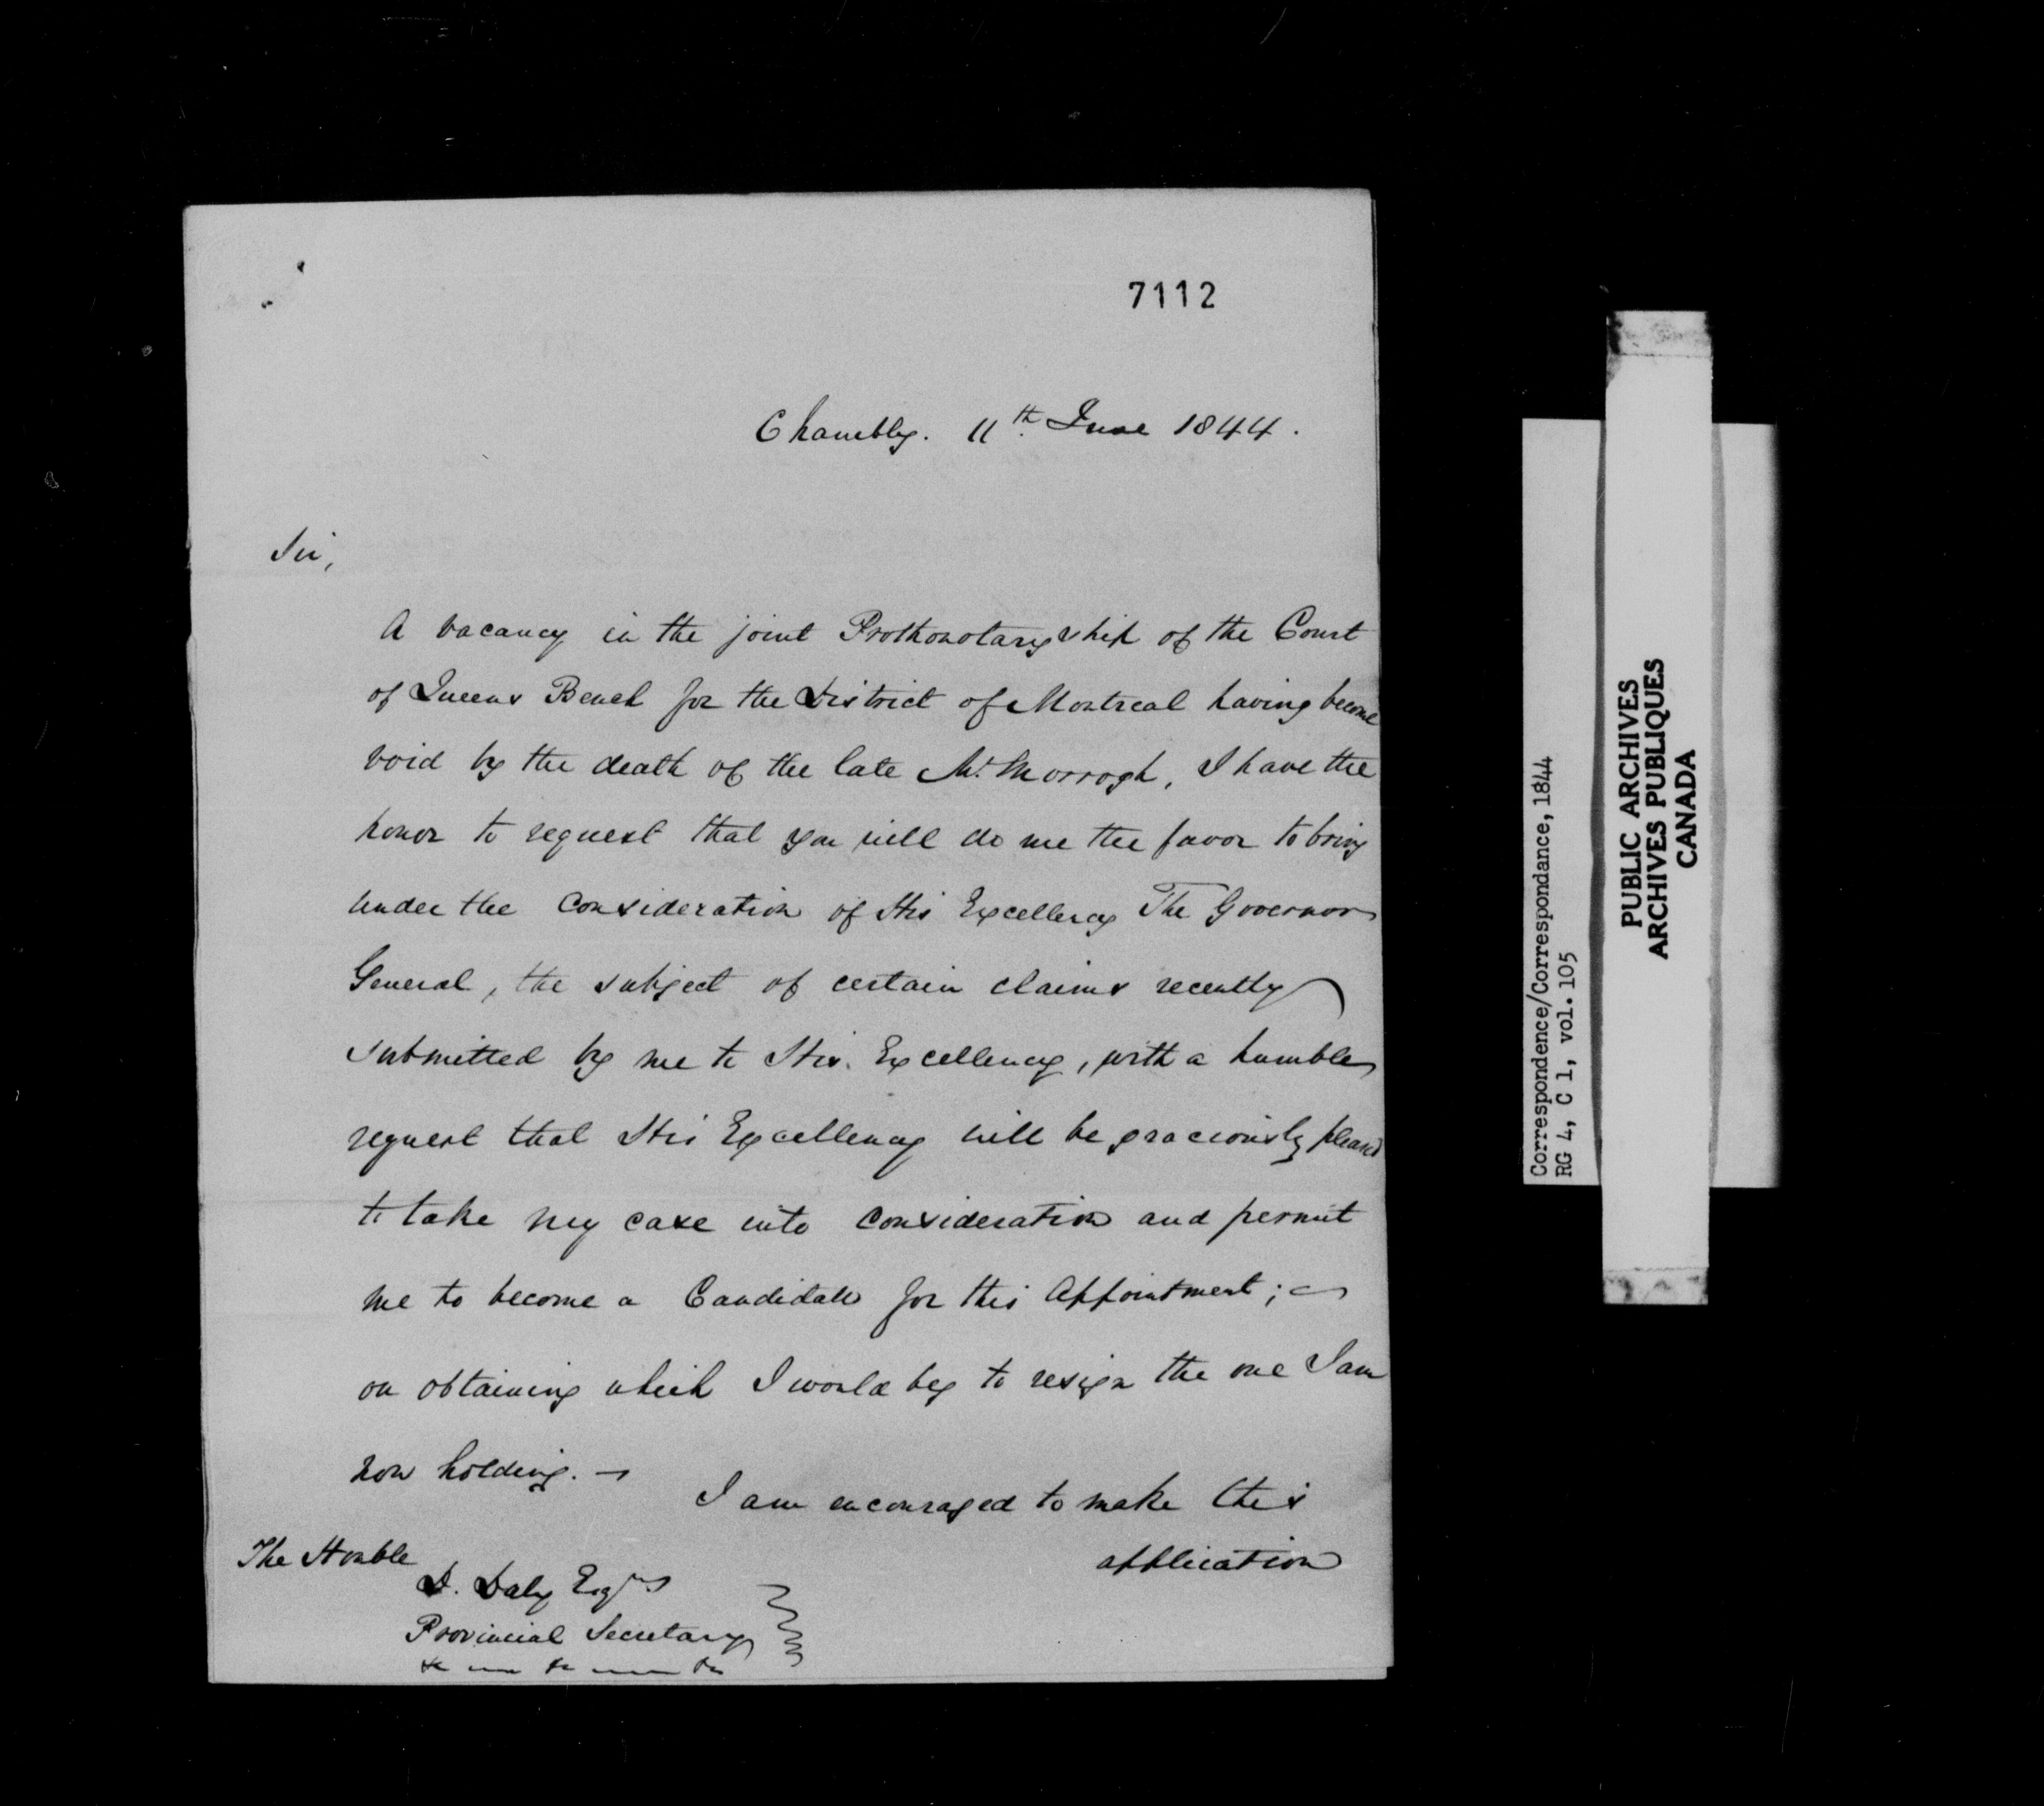 7112
Chambly. 11th June 1844.
Sir,
A vacancy in the joint Prothonotaryship of the Court
of Queens Bench for the District of Montreal having become
void by the death of the late Mr. Morrogh, I have the
honor to request that you will do me the favor to bring
under the Consideration of His Excellency The Governor
General, the subject of certain claims recently
submitted by me to His Excellency, with a humble
request that His Excellency will be graciously pleased
to take my case into Consideration and permit
me to become a Candidate for this Appointment; —
on obtaining which I would beg to resign the one I am
now holding. —
I am encouraged to make this
application
The Honble
D. Daly Esqre
Provincial Secretary
&c — &c — &c
Correspondence/Correspondance, 1844
RG 4, C 1, vol. 105
PUBLIC ARCHIVES
ARCHIVES PUBLIQUES
CANADA